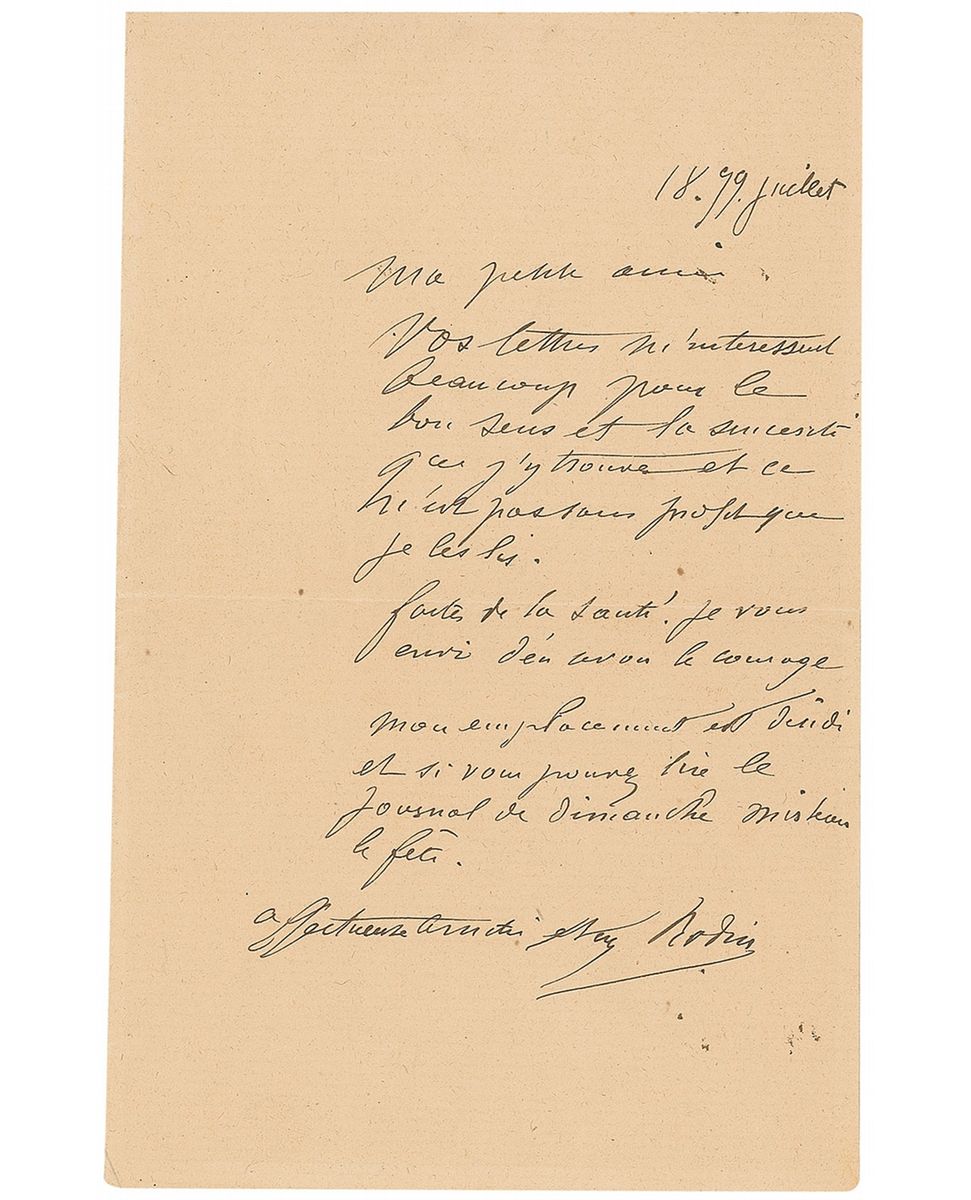 18.99. juillet
Ma petite amie.
Vos lettres m'interessent
beaucoup pour le
bon sens et la sincerité
que j'y trouve et ce
n'est pas sans profit que
je les lis.
faites de la santé. je vous
envi d'en avoir le courage
mon emplacement est
et si vous pouvez lire le
Journal de dimanche
la fête.
affectueuse amitié Rodin